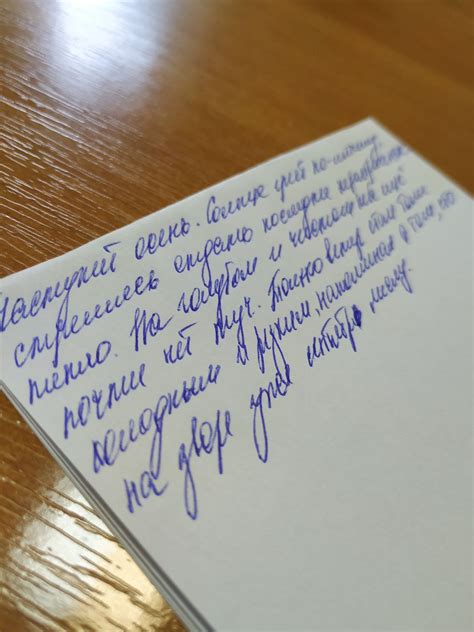 Наступил осень. Солнце греет по-летнему,
стремясь отдать последнее
тепло. На голубом и чистом небе ещё
почти нет туч. Только ветер стал более
холодным и, напоминая о том, что
на дворе уже